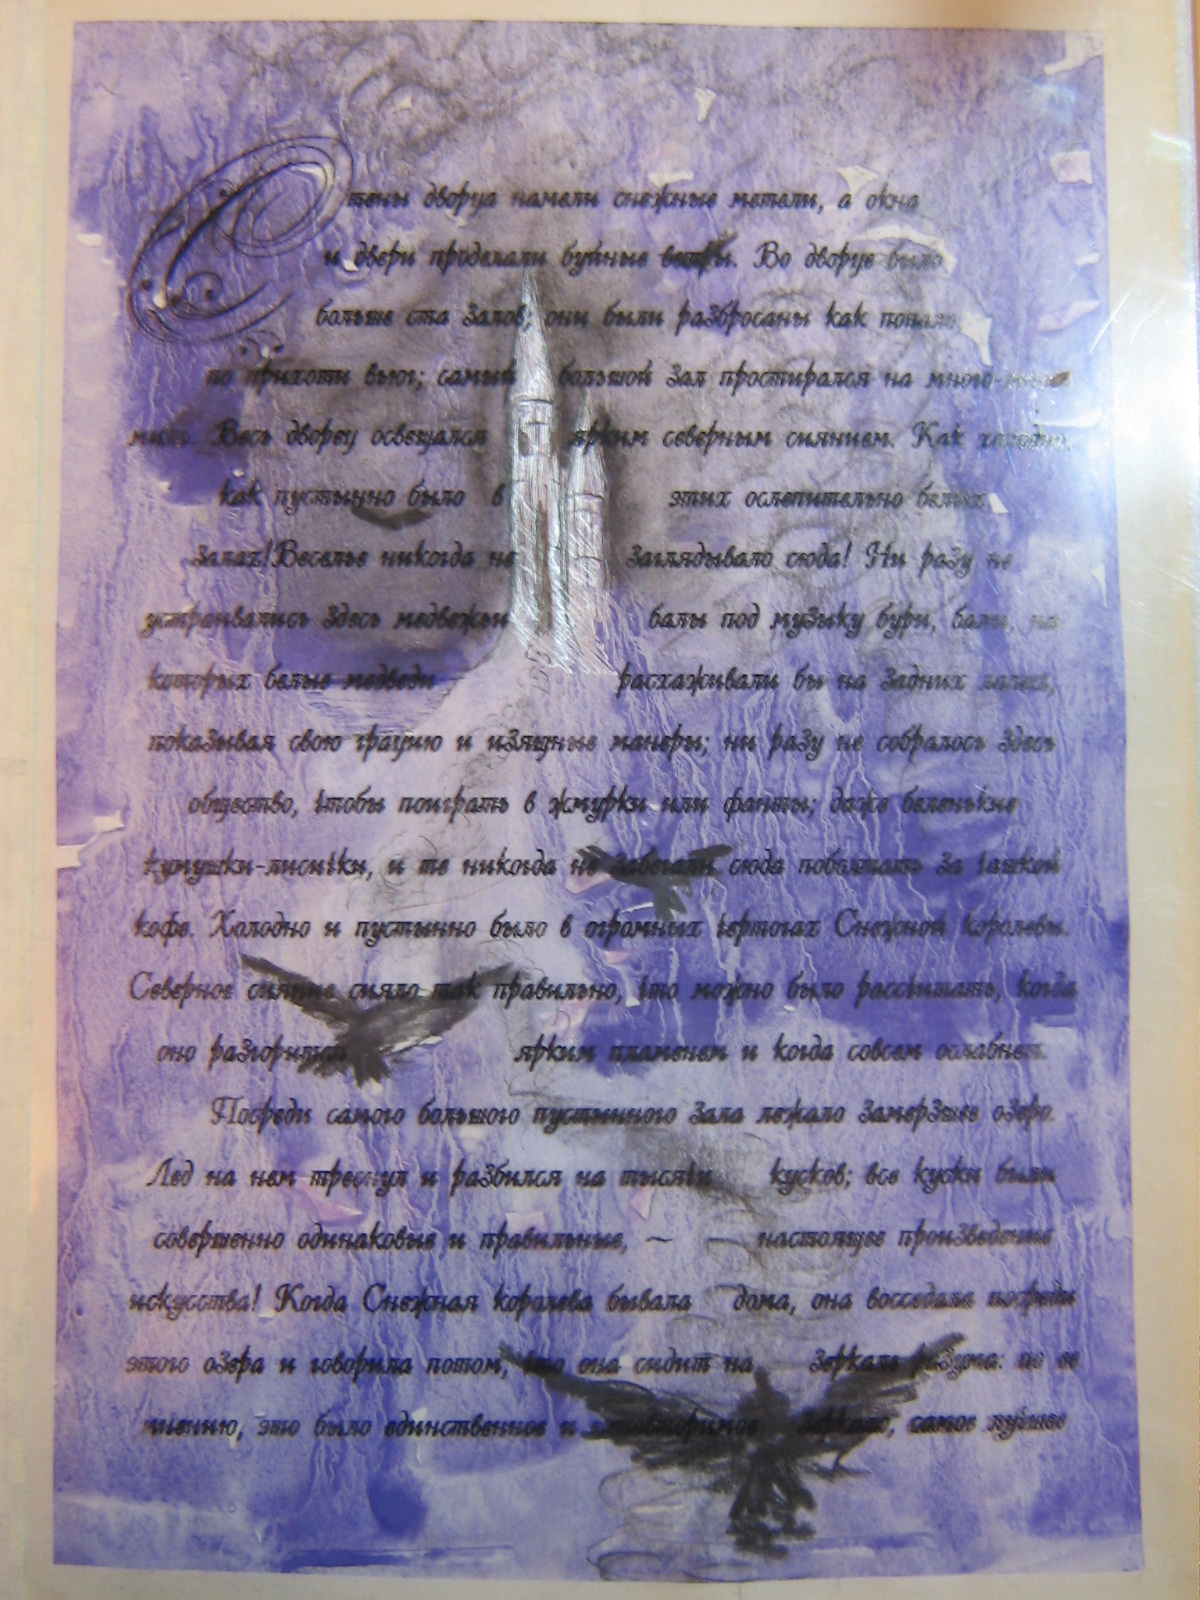 Стены дворца намели снежные метели, а окна
и двери проделали буйные ветры. Во дворце было
больше ста залов; они были разбросаны как попало,
по прихоти вьюг; самый большой зал простирался на много-много
миль. Весь дворец освещался ярким северным сиянием. Как холодно,
как пустынно было в этих ослепительно белых
залах! Веселье никогда не заглядывало сюда! Ни разу не
устраивались здесь медвежьи балы под музыку бури, балы, на
которых белые медведи расхаживали бы на задних лапах,
показывая свою грацию и изящные манеры; ни разу не собралось здесь
общество, чтобы поиграть в жмурки или фанты; даже беленькие
кумушки-лисички, и те никогда не забегали сюда поболтать за чашкой
кофе. Холодно и пустынно было в огромных чертогах Снежной королевы.
Северное сияние сияло так правильно, что можно было рассчитать, когда
оно разгорится ярким пламенем и когда совсем ослабнет.
Посреди самого большого пустынного зала лежало замерзшее озеро.
Лед на нем треснул и разбился на тысячи кусков; все куски были
совершенно одинаковые и правильные, – настоящее произведение
искусства! Когда Снежная королева бывала дома, она восседала посреди
этого озера и говорила потом, что она сидит на зеркале разума: по ее
мнению, это было единственное и неповторимое зеркало, самое лучшее